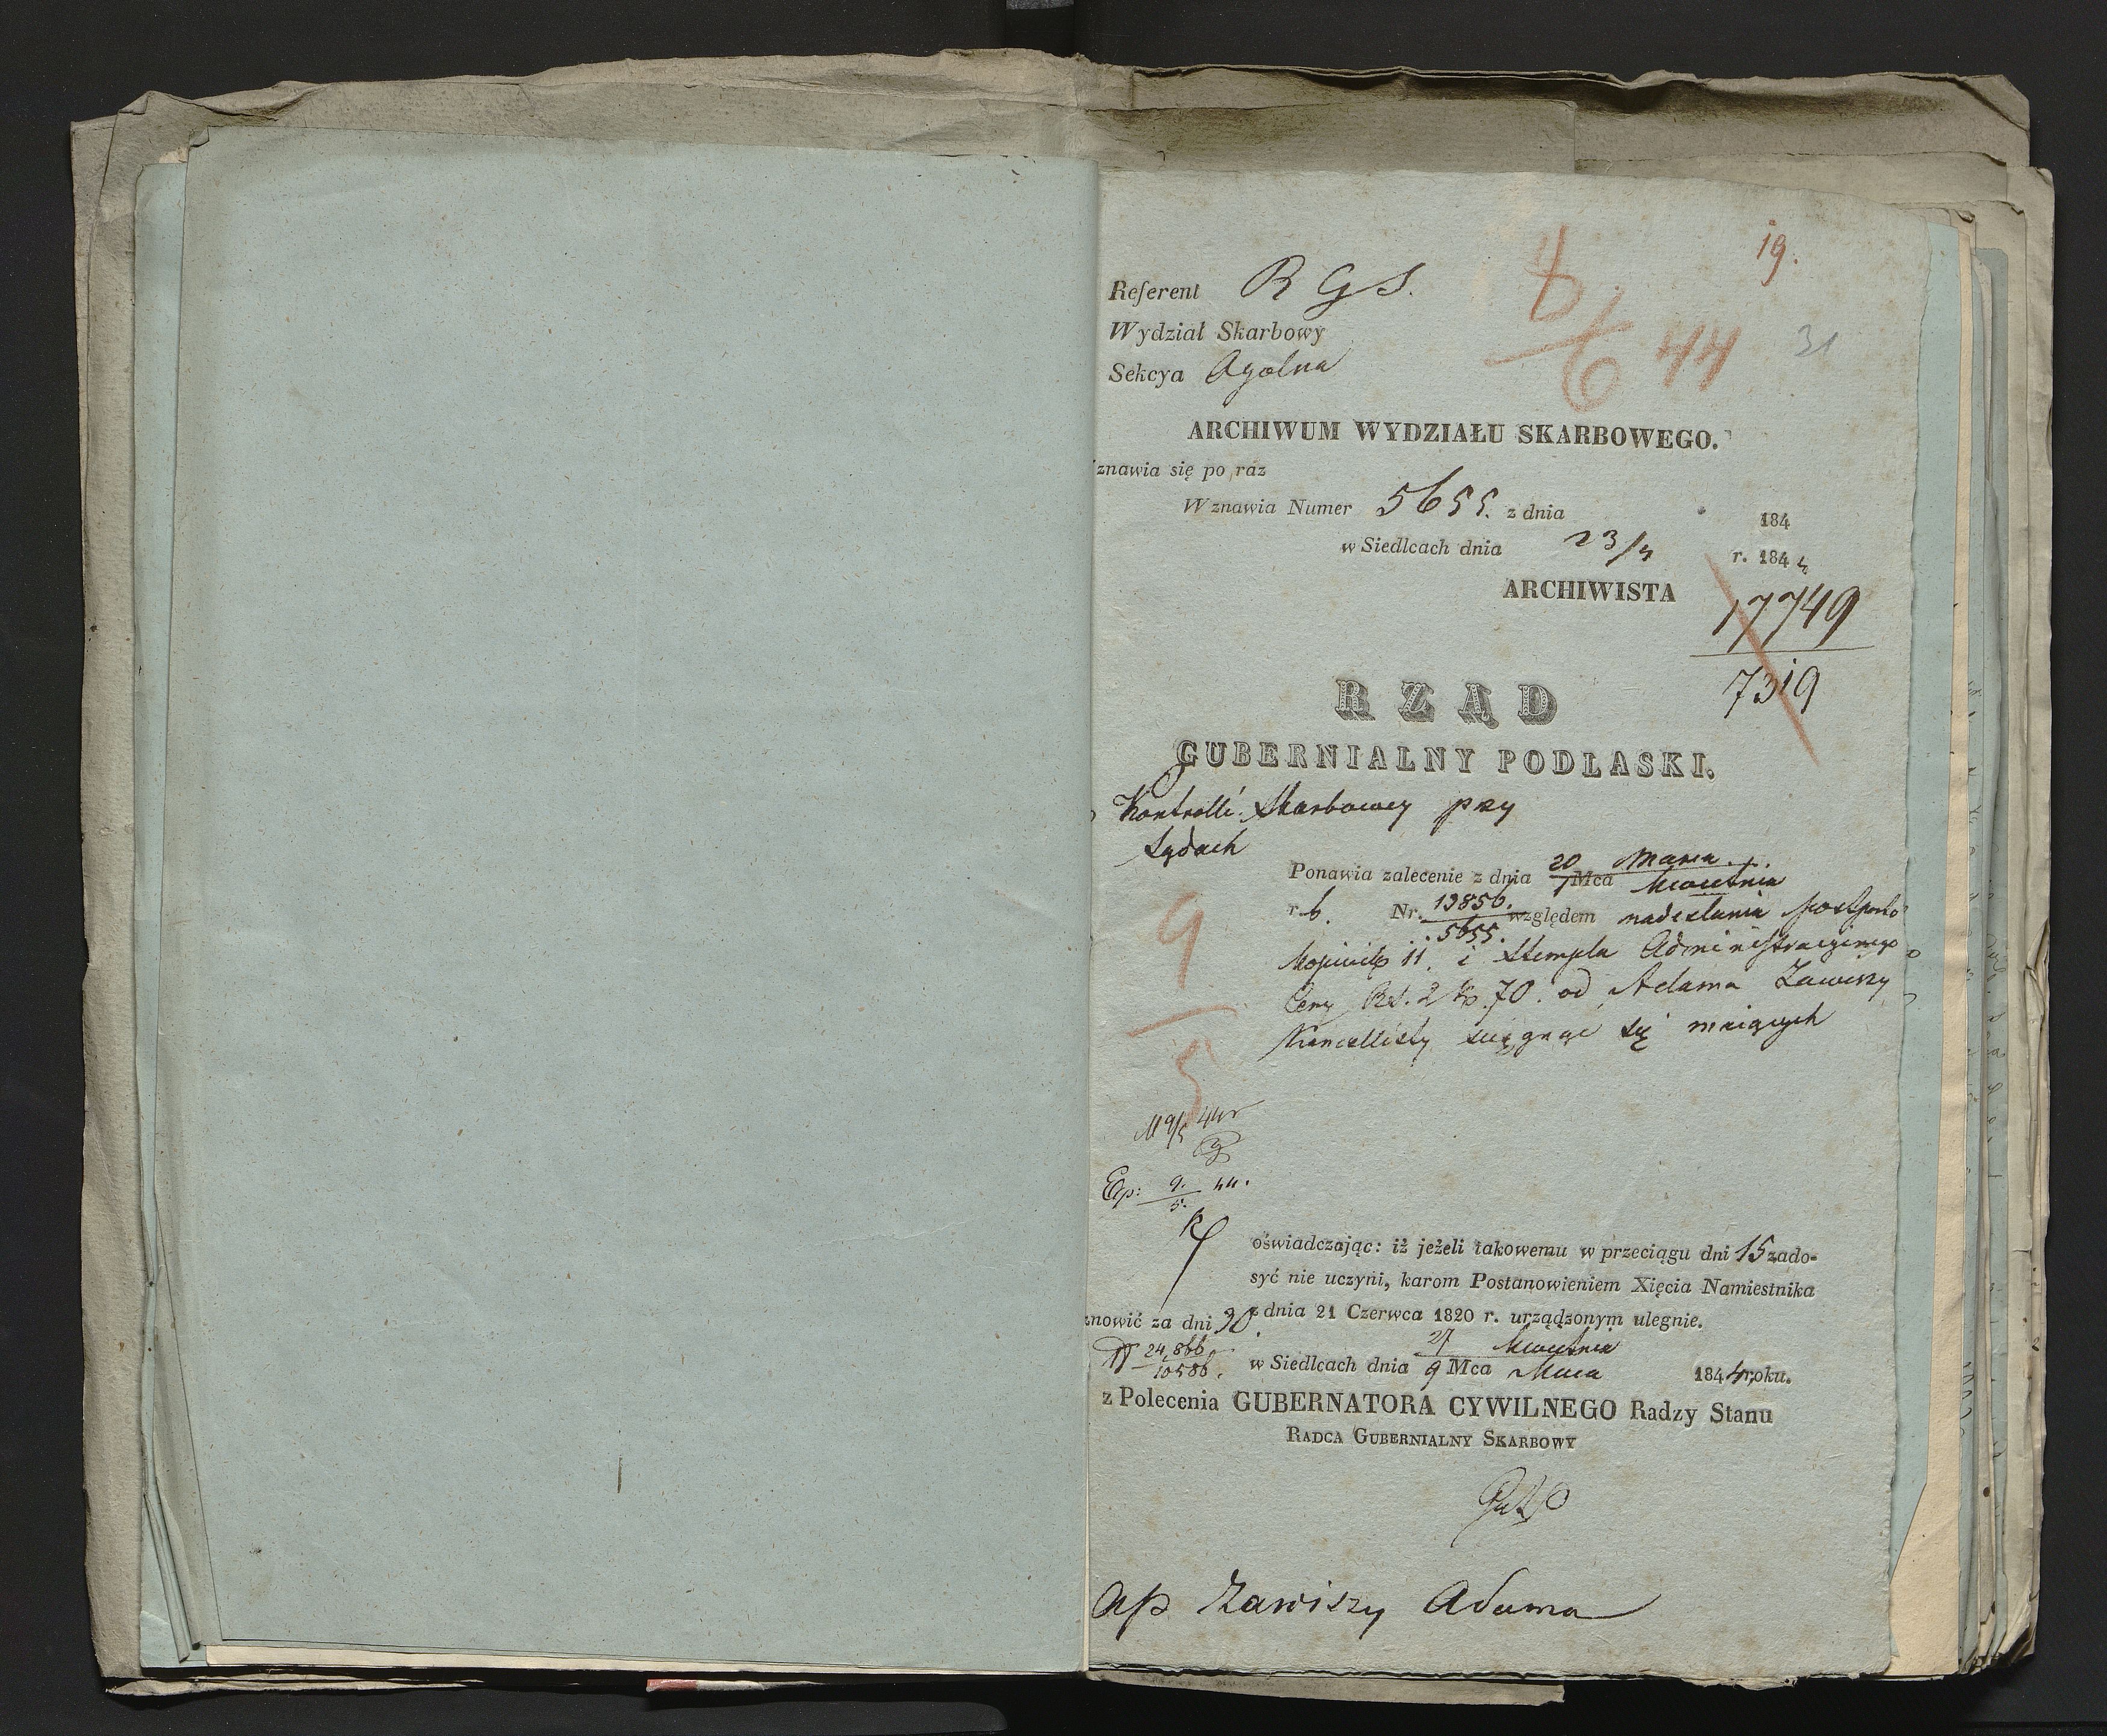 19.
6 44
31
Referent R G S.
Wydział Skarbowy
Sekcya Ogolna
ARCHIWUM WYDZIAŁU SKARBOWEGO.
znawia się po raz
Wznawia Numer 5655. z dnia 184
w Siedlcach dnia 23/4 r. 1844
ARCHIWISTA
17749
7319
RZĄD
GUBERNIALNY PODLASKI.
Kontrolli Skarbowey przy
Sądach
Ponawia zalecenie z dnia 20/1 Mca Marca/Kwietnia
r. b. Nr. 13856./5655. względem nadesłania
11. i Stempla Administracyinego
Ceny Rs. 2 k. 70. od Adama Zawiszy
Kancellisty ściągnąć się maiących
9
5
9/5 44r
Exp: 9./5. 44.
oświadczając: iż jeżeli takowemu w przeciągu dni 15 zado-
syć nie uczyni, karom Postanowieniem Xięcia Namiestnika
z dnia 21 Czerwca 1820 r. urządzonym ulegnie.
znowić za dni 30
24,866/10586.
w Siedlcach dnia 27/9 Mca Kwietnia/Maia 1844 roku.
z Polecenia GUBERNATORA CYWILNEGO Radzy Stanu
RADCA GUBERNIALNY SKARBOWY
ap Zawiszy Adama